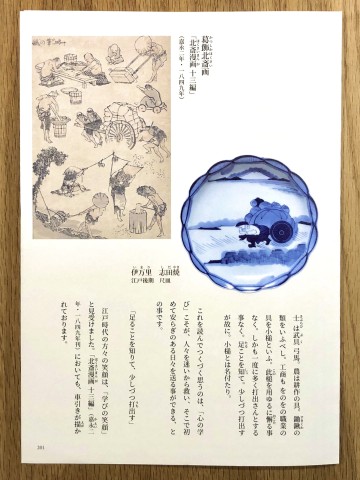 葛飾北斎画
『北斎漫画 十三編』
（嘉永二年・一八四九年）
伊万里 志田焼
江戸後期 尺皿
士は武具 弓馬、農は耕作の具、鋤鍬の
類をいふべし、工商も をのをの職業の
具を小槌といふ、此槌を用ゆるに懈る事
なく、しかも一度に多く打出さんとする
事なく、足ことを知て、少しづつ打出す
が故に、小槌とは名付たり。
これを読んでつくづく思うのは、「心の学
び」こそが、人々を迷いから救い、そこで初
めて安らぎのある日々を送る事ができる、と
の事です。
「足ることを知りて、少しづつ打出す」
江戸時代の方々の笑顔は、「学びの笑顔」
と見受けました。『北斎漫画十三編』（嘉永二
年・一八四九年刊）においても、車引きが描か
れております。
201